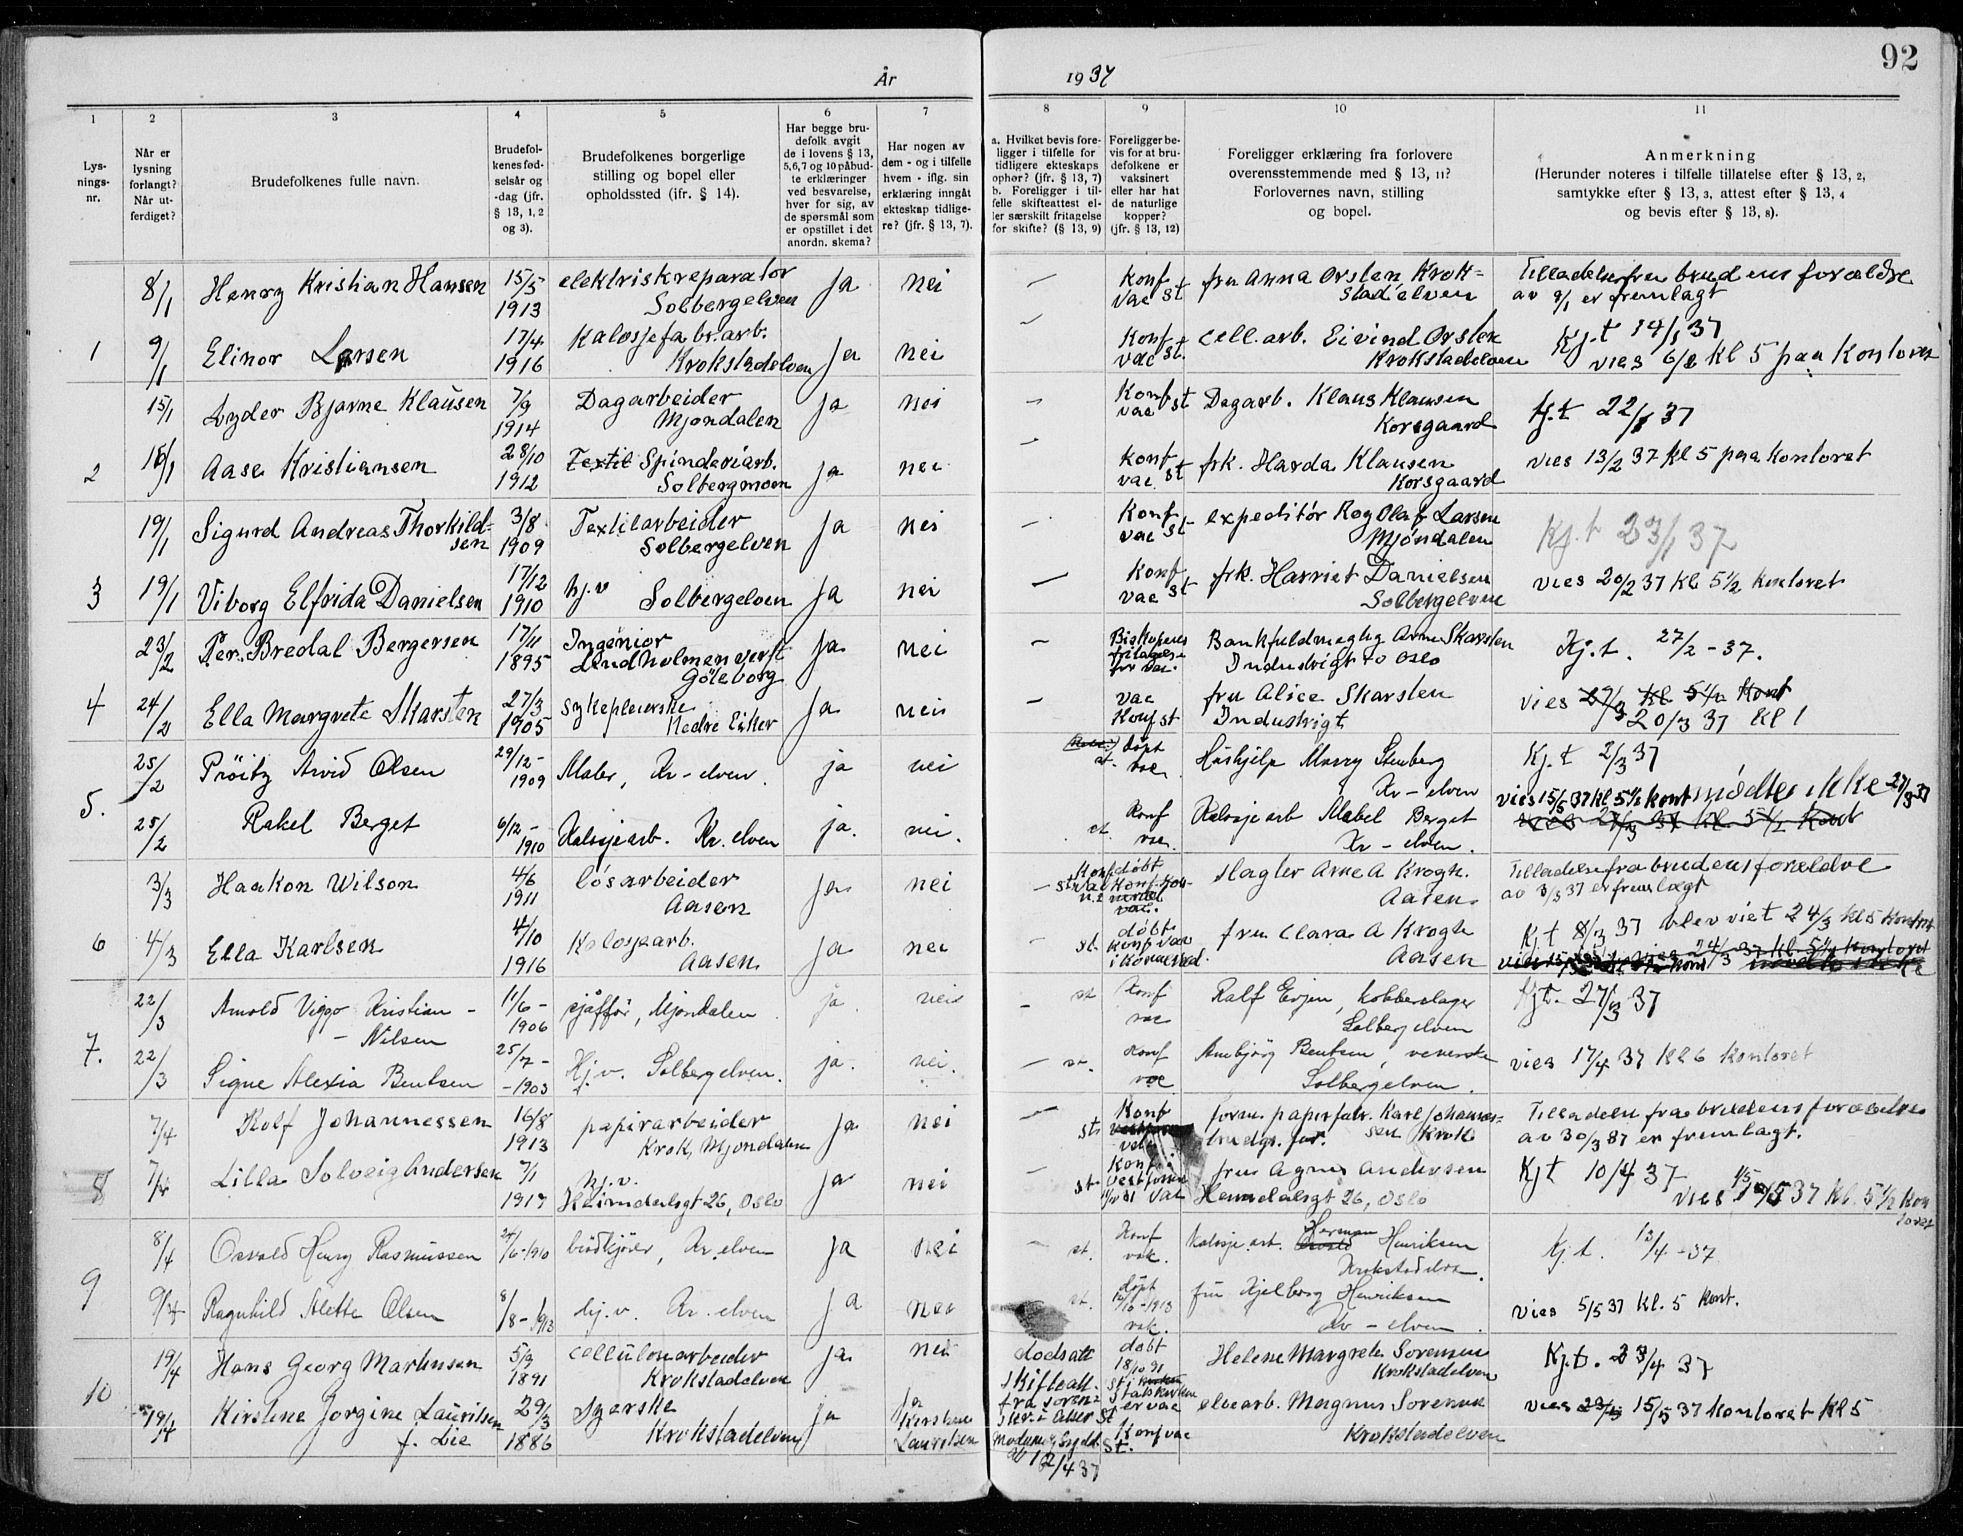 92
År 1937
1 2 3 4 5 6 7 8 9 10 11
Lys-
nings-
nr.
Når er
lysning
forlangt?
Når ut-
ferdiget?
Brudefolkenes fulle navn.
Brudefol-
kenes fød-
selsår og
-dag (jfr.
§ 13, 1, 2
og 3).
Brudefolkenes borgerlige
stilling og bopel eller
opholdssted (ifr. § 14).
Har begge bru-
defolk avgit
de i lovens § 13,
5,6,7 og 10 påbud-
te erklæringer
ved besvarelse,
hver for sig, av
de spørsmål som
er opstillet i det
anordn. skema?
Har nogen av
dem - og i tilfelle
hvem - iflg. sin
erklæring inngåt
ekteskap tidlige-
re? (jfr. § 13, 7).
a. Hvilket bevis fore-
ligger i tilfelle for
tidligere ekteskaps
ophør? (jfr. § 13, 7)
b. Foreligger i til-
felle skifteattest el-
ler særskilt fritagelse
for skifte? (§ 13, 9)
Foreligger be-
vis for at bru-
defolkene er
vaksinert
eller har hat
de naturlige
kopper?
(jfr. § 13, 12)
Foreligger erklæring fra forlovere
overensstemmende med § 13, 11?
Forlovernes navn, stilling
og bopel.
Anmerkning
(Herunder noteres i tilfelle tillatelse efter § 13, 2,
samtykke efter § 13, 3, attest efter § 13, 4
og bevis efter § 13, 8).
8/1 Henry Kristian Hansen 15/5 1913 elektriskreparatør Solbergelven ja nei — Konf vac st fru Anna Ørsten, Krok= stadelven Tilladelse fra brudens forældre
av 9/1 er fremlagt
1 9/1 Elinor Larsen 17/4 1916 Kalosjefabr.arb. Krokstadelven ja nei — Konf vac st. cell.arb. Eivind Ørsten Krokstadelven Kj.t 14/1 37
vies 6/2 kl 5 paa Kontoret
15/1 Lyder Bjarne Klausen 7/9 1914 Dagarbeider Mjøndalen ja nei — Konf vac st Dagarb. Klaus Klausen Korsgaard Kj.t 22/1 37
2 16/1 Aase Kristiansen 28/10 1912 Textil Spinderiarb. Solbergmoen ja nei — Konf vac st frk. Harda Klausen Korsgaard vies 13/2 37 kl 5 paa kontoret
19/1 Sigurd Andreas Thorkild-
sen 3/8 1909 Textilarbeider Solbergelven ja nei — Konf vac st expeditør Olaf Larsen Mjøndalen Kj.t 23/1 37
3 19/1 Viborg Elfrida Danielsen 17/12 1910 hj.v Solbergelven ja nei — Konf vac st frk. Harriet Danielsen Solbergelven vies 20/2 37 kl 5½ kontoret
23/2 Per Bredal Bergersen 17/11 1895 Ingeniør Lindholmen verft Gøteborg ja nei — Biskopens fritagelse for vac. Bankfuldmegtig Arne Skarsten Industrigt Oslo Kj.t. 27/2-37.
4 24/2 Ella Margrete Skarsten 27/3 1905 sykepleierske Nedre Eiker ja nei — vac Konf st fru Alice Skarsten Industrigt vies 27/3 kl 5½ Kont
20/3 37 kl 1
25/2 Prøitz Arvid Olsen 29/12- 1909 Maler, Kr-elven. ja nei st. døpt vac. Hushjelp Stenberg Kr-elven Kj.t 2/3 37
5. 25/2 Rakel Berget 6/12- 1910 Kalosjearb. Kr. elven ja. nei. st. Konf vac. Kalosjearb Mabel Berget Kr-elven. vies 15/5 37 kl 5½ kont mødte ikke 27/3 37
3/3 Haakon Wilson 4/6 1911 løsarbeider Aasen ja nei — st døbt slagter Arne A Krogh. Aasen Tilladelse fra brudens forældre
av 3/3 37 er fremlagt
6 4/3 Ella Karlsen 4/10 1916 Kalosjearb. Aasen ja nei — st. døbt konf vac fru Clara A Krogh Aasen Kj.t 8/3 37 blev viet 24/3 kl 5 Kontoret
22/3 Arnold Viggo Kristian -
- Nilsen 11/6- 1906 sjåffør, Mjøndalen ja nei — st Konf vac Ralf Evjen, kobberslager Solbergelven Kj.t. 27/3 37
7. 22/3 Signe Alexia Bentsen 25/7- -1903 Hj.v. Solbergelven. ja. nei. — st. Konf vac Annbjørg Bentsen, veverske Solbergelven. vies 17/4 37 kl 6 kontoret
7/4 Rolf Johannessen 16/8 1913 papirarbeider Krok, Mjøndalen ja nei — st Konf vac form. papirfabr. Karl Johannes- sen Krok brudgs. far. Tilladelse fra brudens forældre
av 30/3 37 er fremlagt.
8 7/4 Lilla Solveig Andersen 7/1 1917 hj.v. Heimdalsgt 26, Oslo ja nei — st Konf i Vestfossen 31 vac fru Agnes Andersen Heimdalsgt 26, Oslo Kj t 10/4 37
vies 15/5 37 kl. 5½ Kon
toret
8/4 Osvald Henry Rasmussen 24/6-1910 brødkjører, Kr. elven ja nei — st. Konf vak. Kalosjearb. Herman Henriksen Krokstadelva. Kj.t. 13/4-37
9 9/4 Ragnhild Alette Olsen 8/8-1913 hj.v. Kr. elven ja nei st. døpt 1913 vak. fru Hjelborg Henriksen Kr-elven. vies 5/5 37 kl. 5 kont.
19/4 Hans Georg Martinsen 5/9 1891 celluloearbeider Krokstadelven ja nei dødsatt døbt 18/10 91 Helene Margrete Sørensen Krokstadelven Kj.t. 23/4 37
10 19/4 Kirstine Jørgine Lauritsen
f. Lie 29/3 1886 Syerske Krokstadelven ja ja Kirstine Lauritsen skifteatt. fra soren- skr. i Eiker Modum og Sigdal av 12/4 37 Konf vac st. elvearb. Magnus Sørensen Krokstadelven vies 15/5 37 kontoret kl 5